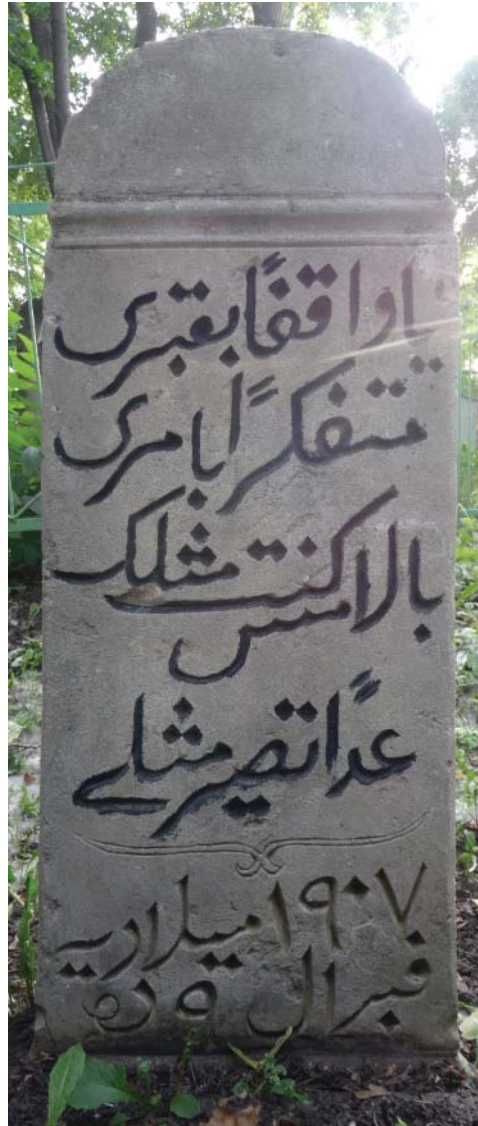 يا واقفًا بقبرى
متفكرًا بامرى
بالامس كنت مثلك
عدًا تصير مثلے
١٩٠٧ ميلاديه
فبرال ٩ ده